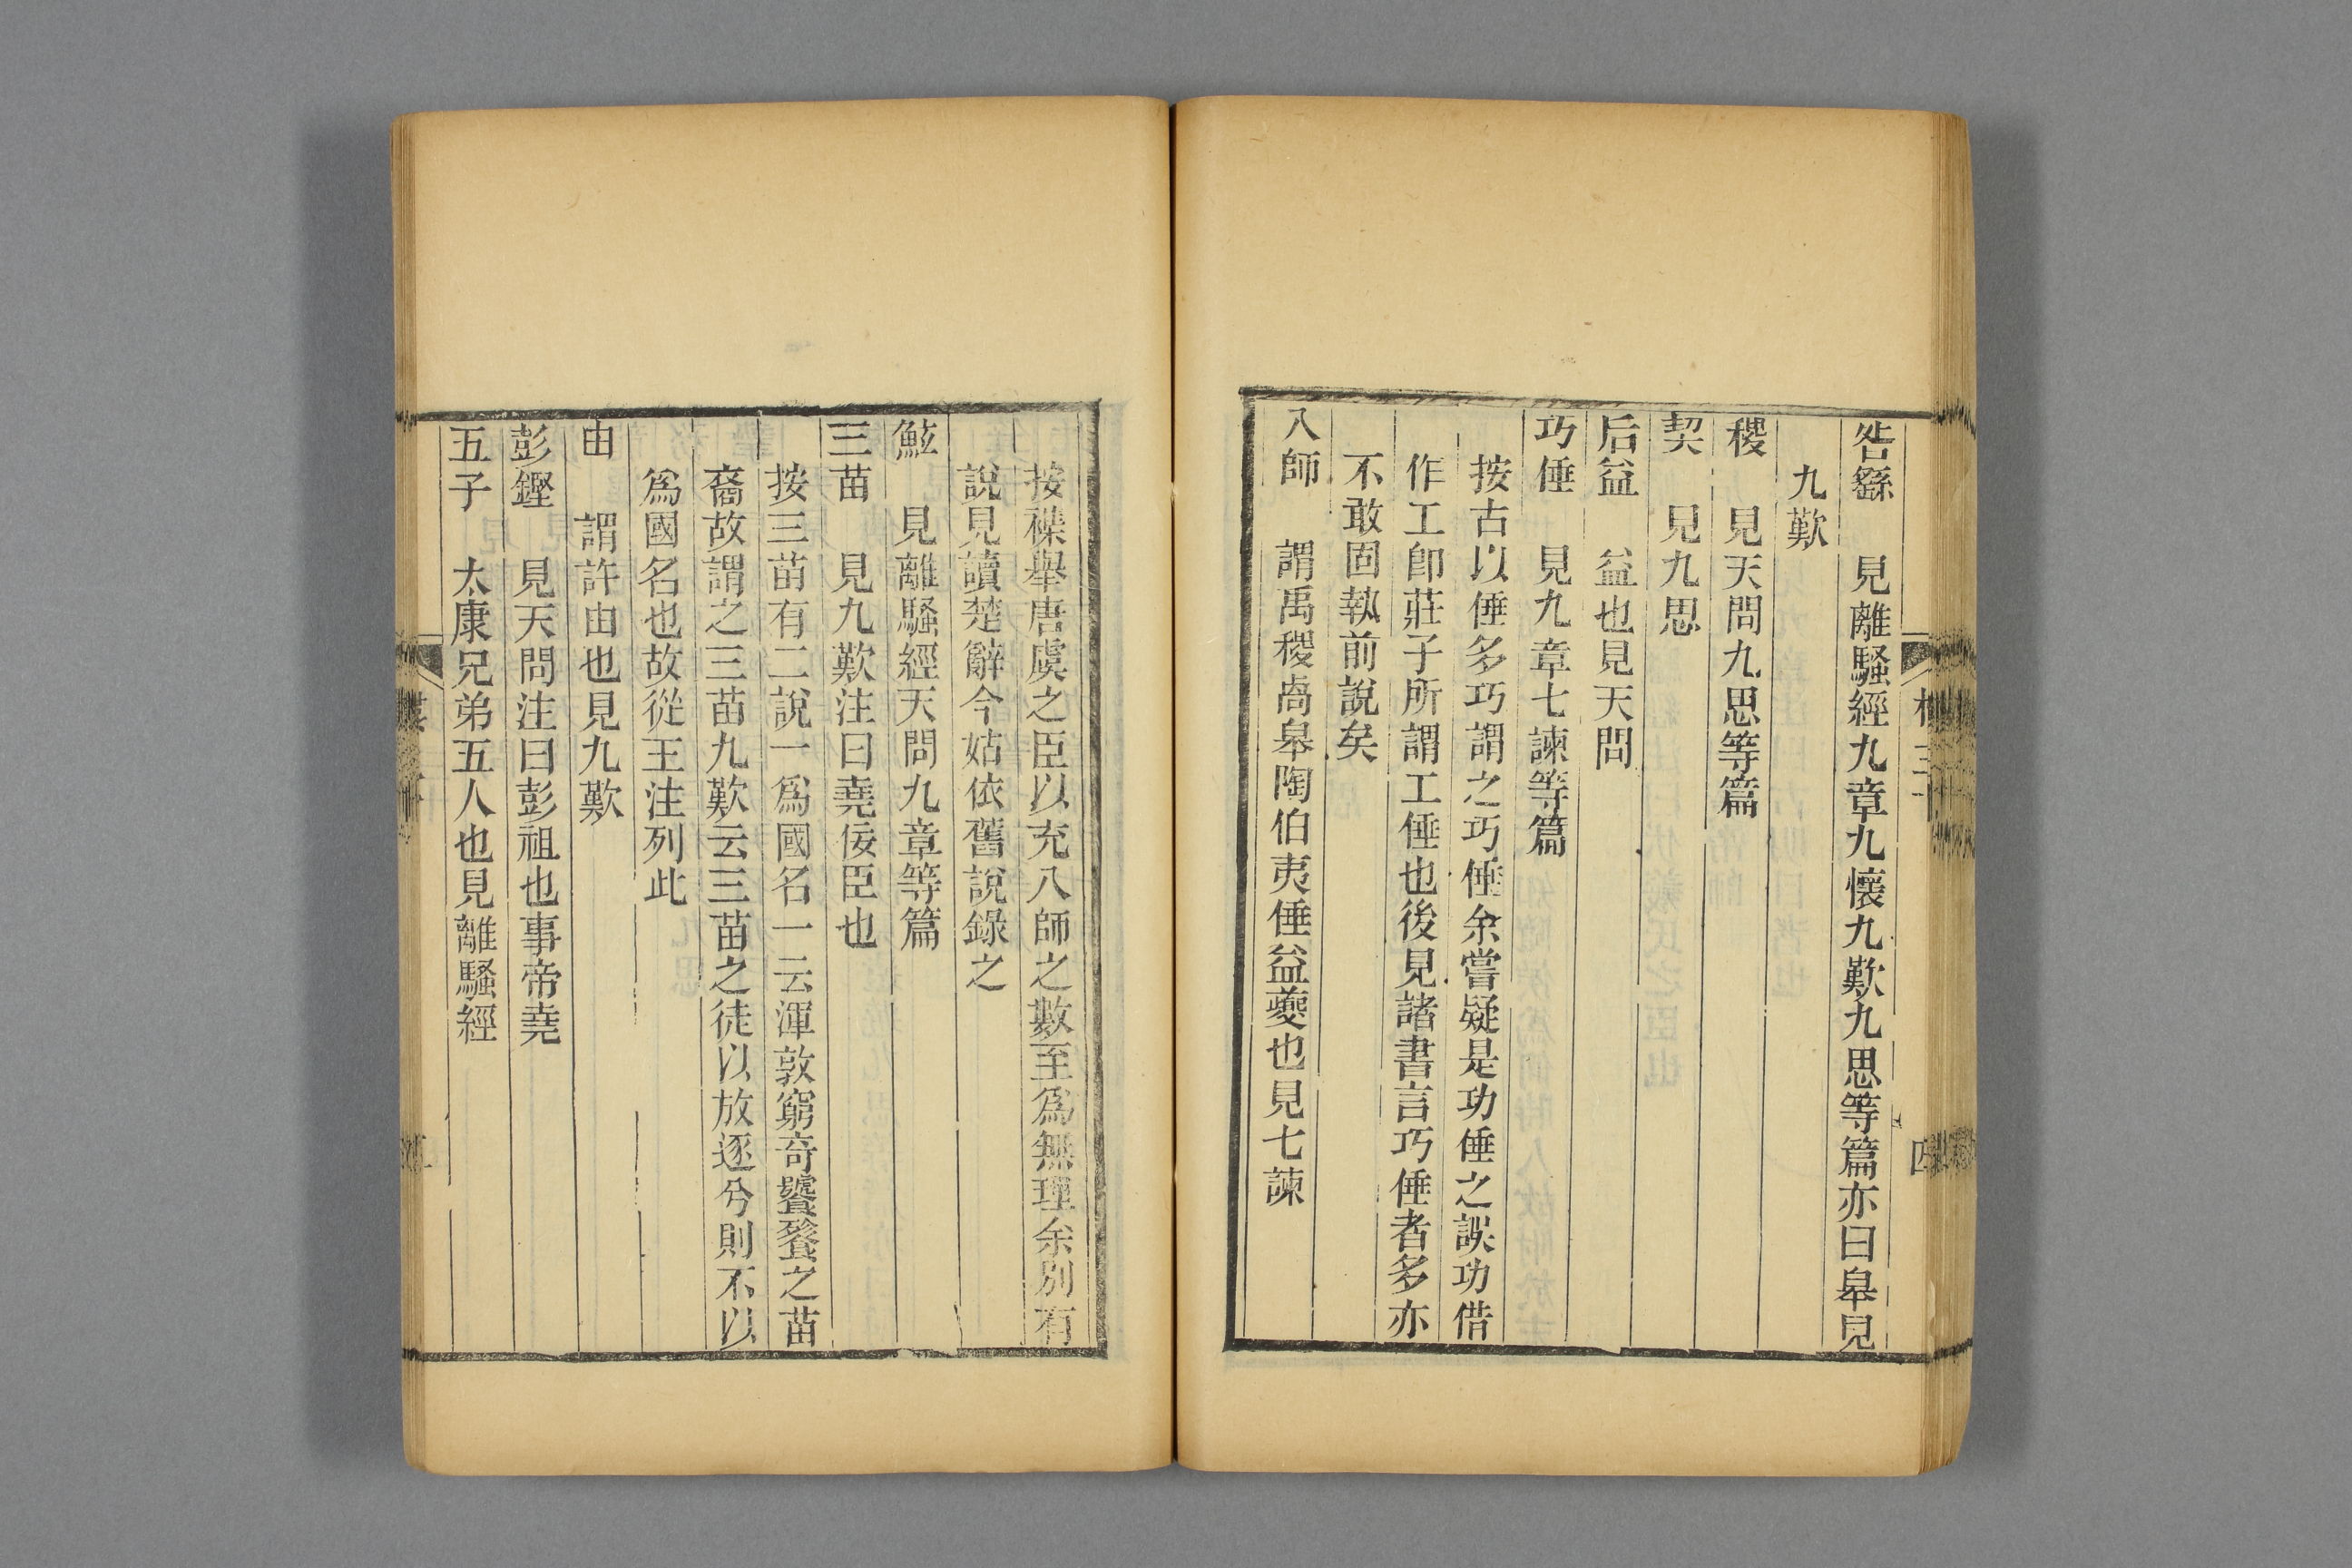 咎繇　見離騷經九章九懷九歎九思等篇亦曰皋見
九歎
稷　見天問九思等篇
契　見九思
后益　益也見天問
巧倕　見九章七諫等篇
按古以倕多巧謂之巧倕余嘗疑是功倕之誤功借
作工卽莊子所謂工倕也後見諸書言巧倕者多亦
不敢固執前說矣
八師　謂禹稷卨皋陶伯夷倕益夔也見七諫
按襍舉唐虞之臣以充八師之數至爲無理余别有
說見讀楚辭今姑依舊說錄之
鮌　見離騷經天問九章等篇
三苗　見九歎注曰堯佞臣也
按三苗有二說一爲國名一云渾敦窮奇饕餮之苗
裔故謂之三苗九歎云三苗之徒以放逐兮則不以
爲國名也故從王注列此
由　謂許由也見九歎
彭鏗　見天問注曰彭祖也事帝堯
五子　太康兄弟五人也見離騷經